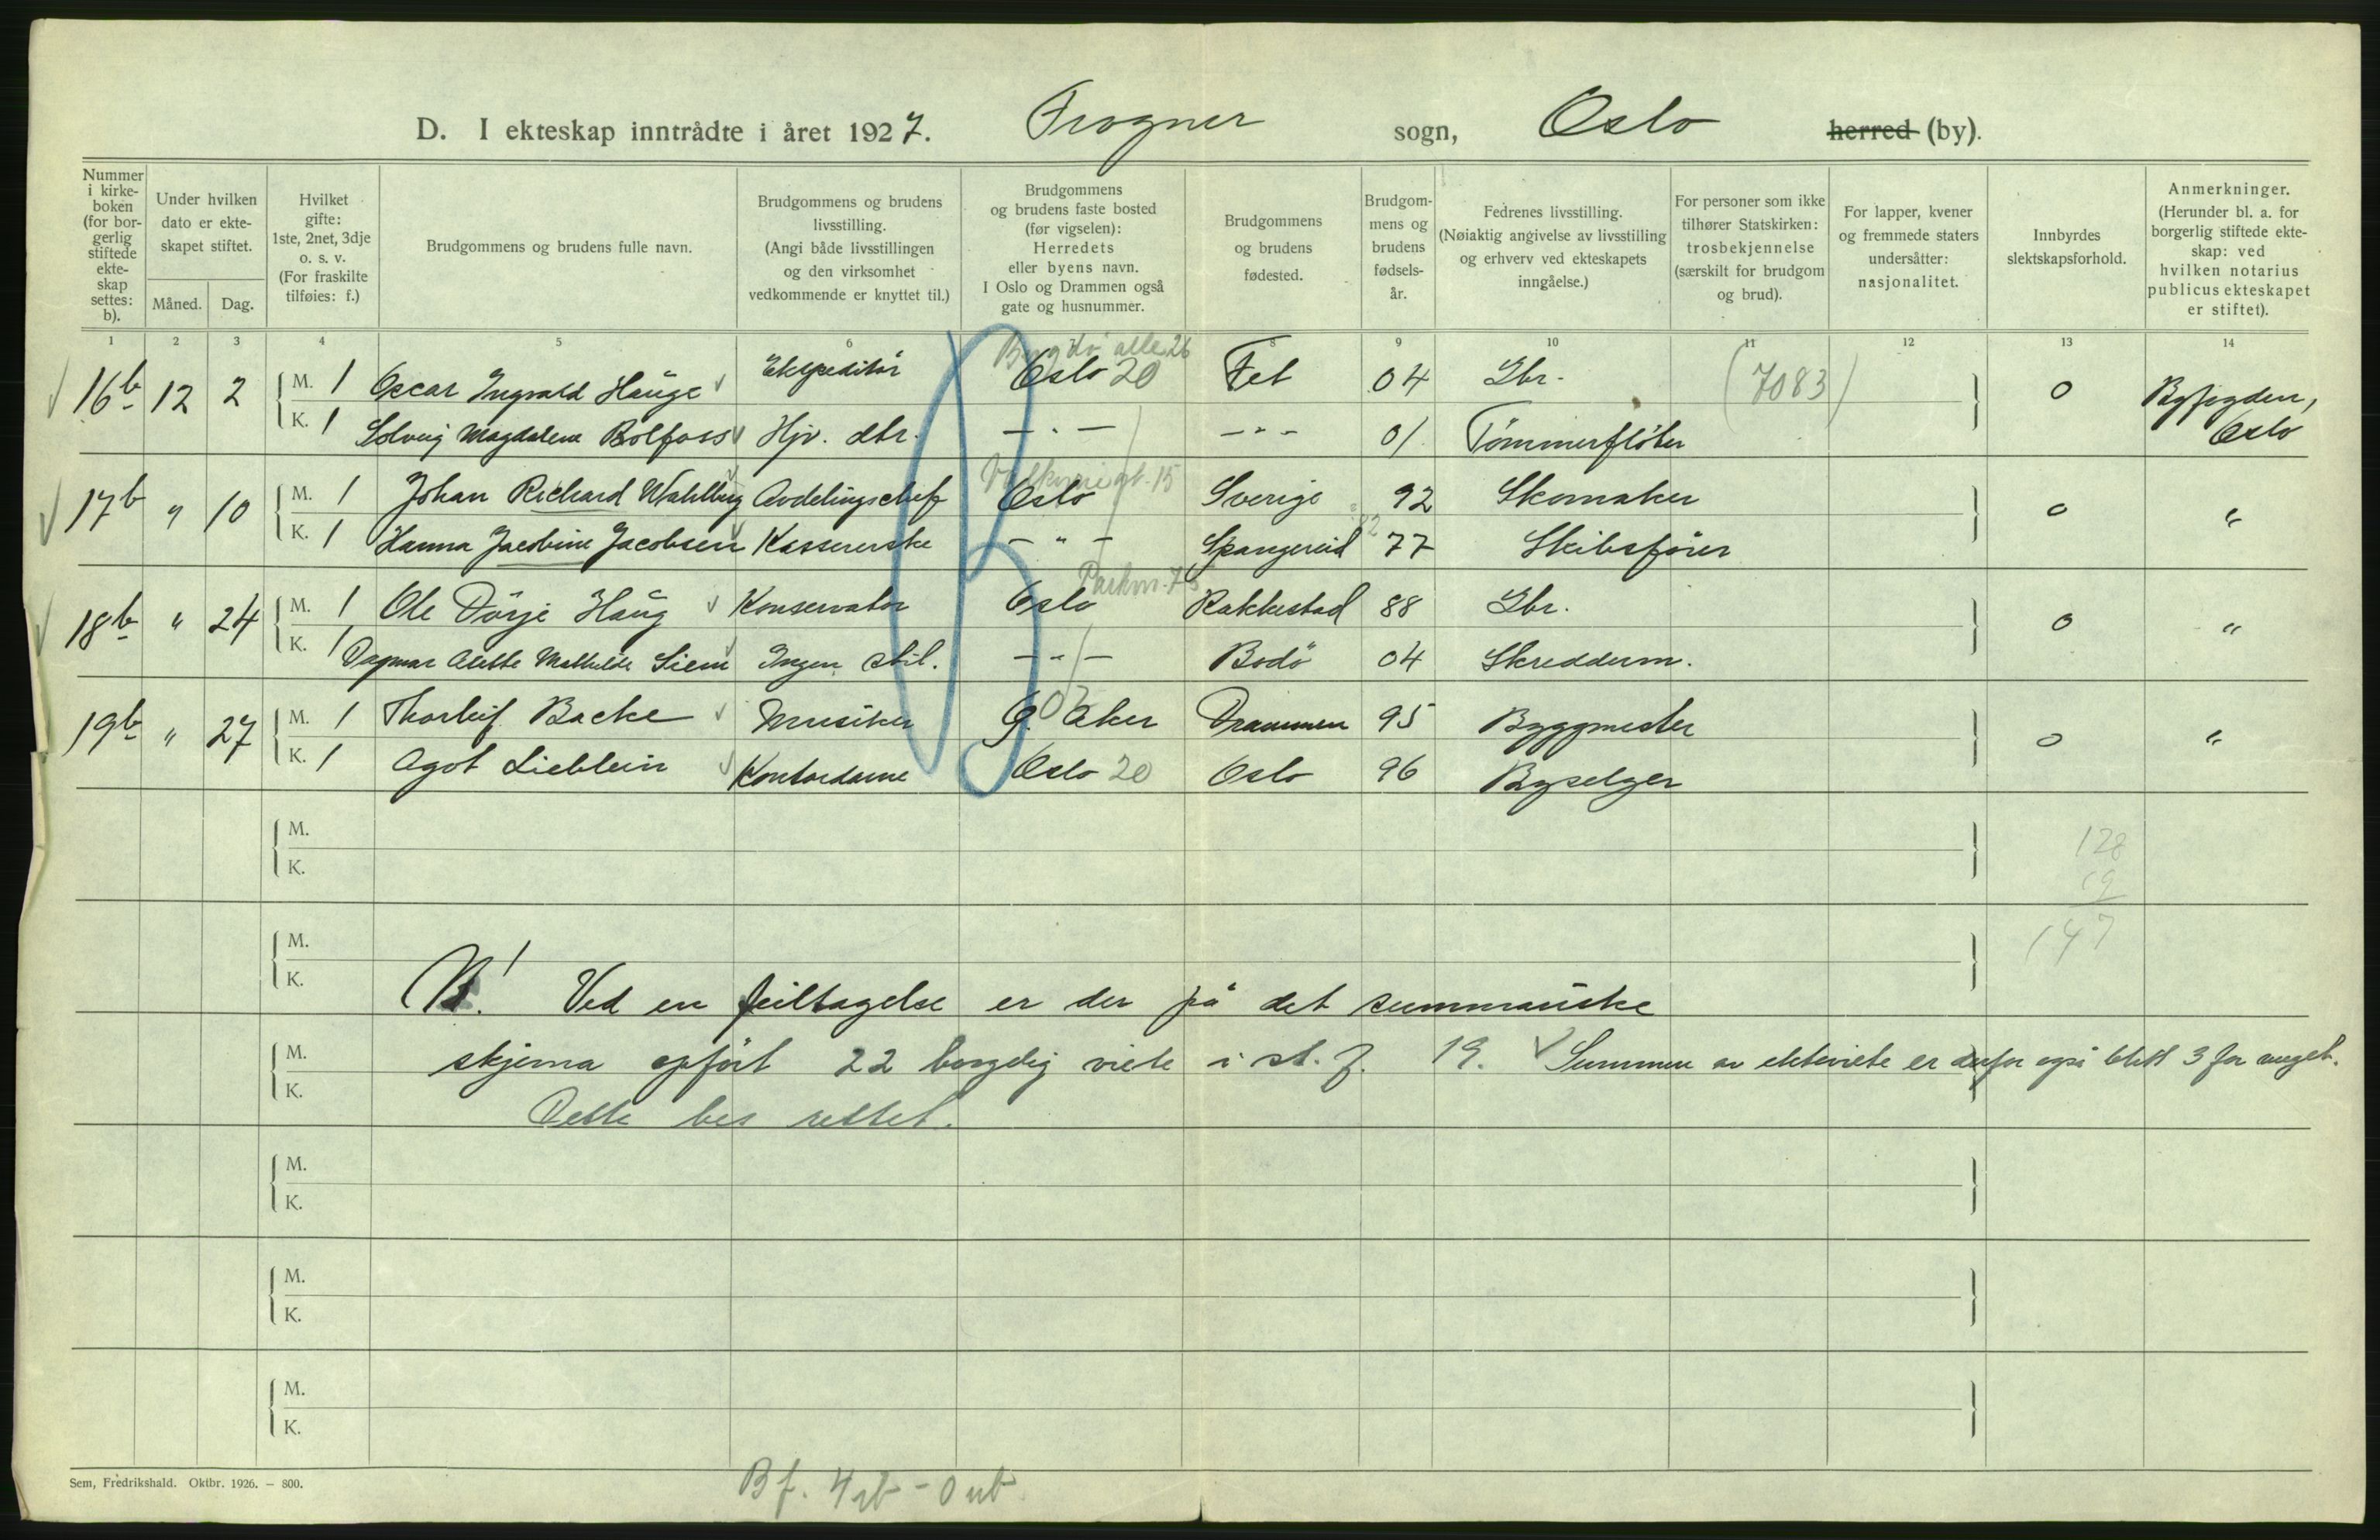 D. I ekteskap inntrådte i året 1927. Frogner sogn, Oslo herred (by).
Nummer i kirke-boken (for bor-gerlig stiftede ekte-skap settes: b).
Under hvilken dato er ekte-skapet stiftet.
Måned. Dag.
Hvilket gifte: 1ste, 2net, 3dje o. s. v. (For fraskilte tilføies: f.)
Brudgommens og brudens fulle navn.
Brudgommens og brudens livsstilling. (Angi både livsstillingen og den virksomhet vedkommende er knyttet til.)
Brudgommens og brudens faste bosted (før vigselen): Herredets eller byens navn. I Oslo og Drammen også gate og husnummer.
Brudgommens og brudens fødested.
Brudgom-mens og brudens fødsels-år.
Fedrenes livsstilling. (Nøiaktig angivelse av livsstilling og erhverv ved ekteskapets inngåelse.)
For personer som ikke tilhører Statskirken: trosbekjennelse (særskilt for brudgom og brud).
For lapper, kvener og fremmede staters undersåtter: nasjonalitet.
Innbyrdes slektskapsforhold.
Anmerkninger. (Herunder bl. a. for borgerlig stiftede ekte-skap: ved hvilken notarius publicus ekteskapet er stiftet).
1 2 3 4 5 6 8 9 10 11 12 13 14
Bygdö alle 26
16b 12 2 M. 1 Oscar Ingvald Hauge Ekspeditör Oslo 20 Fet 04 Gbr. (7083) 0 Byfogden,
K. 1 Solveig Magdalene Bolfoss Hjv. dtr. — " — — " — 01 Tömmerflöter Oslo
Valkyriegt. 15
17b " 10 M. 1 Johan Richard Wahlberg Avdelingschef Oslo Sverige 92 Skomaker 0 "
K. 1 Hanna Jacobine Jacobsen Kassererske — " — Spangereid 77 Skibsförer
Parkv. 75
18b " 24 M. 1 Ole Dörje Haug Konservator Oslo Rakkestad 88 Gbr. 0 "
K. 1 Dagmar Alette Mathilde Siem Ingen stil. — " — Bodö 04 Skredderm.
19b " 27 M. 1 Thorleif Backe Musiker Ö. Aker Drammen 95 Byggmester 0 "
K. 1 Agot Lieblein Kontordame Oslo 20 Oslo 96 Byselger
M. 128
K. 19
M. 147
K.
NB! Ved en feiltagelse er der på det summariske
M. skjema opfört 22 borgelig viete i st. f. 19. Summen av ekteviete er derfor også blitt 3 for meget.
K.
Dette bes rettet.
M.
K.
M.
K.
M.
K.
Sem, Fredrikshald. Oktbr. 1926. – 800.
Bf. 4 ub – 0 ub